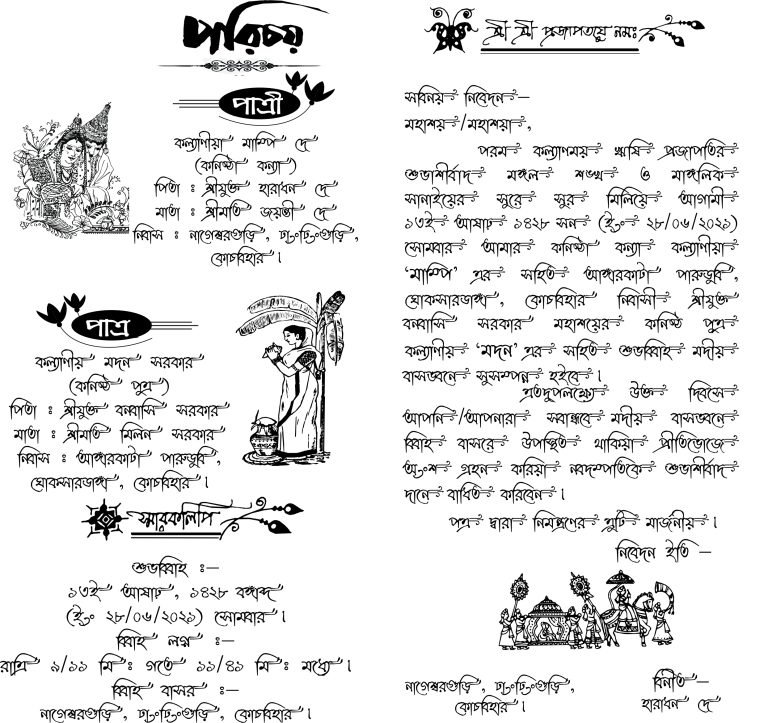 পরিচয়
পাত্রী
কল্যাণীয়া মাম্পি দে
(কনিষ্ঠা কন্যা)
পিতা : শ্রীযুক্ত হারাধন দে
মাতা : শ্রীমতি জয়ন্তী দে
নিবাস : নাগেশ্বরগুড়ি, ঢ্যাংঢিংগুড়ি,
কোচবিহার।
পাত্র
কল্যাণীয় মদন সরকার
(কনিষ্ঠ পুত্র)
পিতা : শ্রীযুক্ত বনবাসি সরকার
মাতা : শ্রীমতি মিলিন সরকার
নিবাস : আঙ্গারকাটা পারডুবি,
ঘোকসারডাঙ্গা, কোচবিহার।
স্মারকলিপি
শুভবিবাহ ঃ–
১৩ই আষাঢ়, ১৪২৮ বঙ্গাব্দ
(ইং ২৮/০৬/২০২১) সোমবার।
বিবাহ লগ্ন ঃ–
রাত্রি ৯/১১ মি: গতে ১১/৪১ মি: মধ্যে।
বিবাহ বাসর ঃ–
নাগেশ্বরগুড়ি, ঢ্যাংঢিংগুড়ি, কোচবিহার।
শ্রী শ্রী প্রজাপতয়ে নমঃ
সবিনয় নিবেদন–
মহাশয়/মহাশয়া,
পরম কল্যাণময় ঋষি প্রজাপতির
শুভাশীর্বাদ মঙ্গল শঙ্খ ও মাঙ্গলিক
সানাইয়ের সুরে সুর মিলিয়ে আগামী
১৩ই আষাঢ় ১৪২৮ সন (ইং ২৮/০৬/২০২১)
সোমবার আমার কনিষ্ঠা কন্যা কল্যাণীয়া
‘মাম্পি’ এর সহিত আঙ্গারকাটা পারডুবি,
ঘোকসারডাঙ্গা, কোচবিহার নিবাসী শ্রীযুক্ত
বনবাসি সরকার মহাশয়ের কনিষ্ঠ পুত্র
কল্যাণীয় ‘মদন’ এর সহিত শুভবিবাহ মদীয়
বাসভবনে সুসম্পন্ন হইবে।
এতদুপলক্ষ্যে উক্ত দিবসে
আপনি/আপনারা সবান্ধবে মদীয় বাসভবনে
বিবাহ বাসরে উপস্থিত থাকিয়া প্রীতিভোজে
অংশ গ্রহন করিয়া নবদম্পতিকে শুভাশীর্বাদ
দানে বাধিত করিবেন।
পত্র দ্বারা নিমন্ত্রণের ত্রুটি মার্জনীয়।
নিবেদন ইতি –
নাগেশ্বরগুড়ি, ঢ্যাংঢিংগুড়ি,
কোচবিহার।
বিনীত–
হারাধন দে